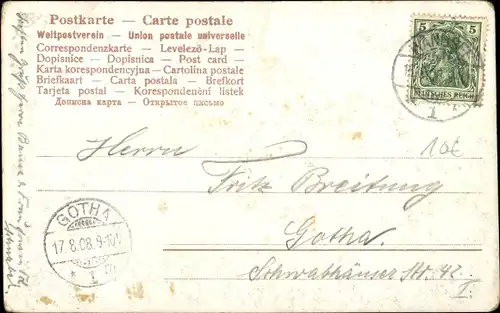 Postkarte – Carte postale
Weltpostverein – Union postale universelle
Correspondenzkarte – Levelező-Lap –
Dopisnice – Dopisnica – Post card –
Karta korespondencyjna – Cartolina postale
Briefkaart – Carta postala – Brefkort
Tarjeta postal – Korespondenční listek
Дописна карта – Открытое письмо
5 5
DEUTSCHES REICH
1
10€
Herrn
Fritz Breitung
Gotha.
Schwabhäuser Str. 42
I.
GOTHA
17.8.08.9-10V
* 1